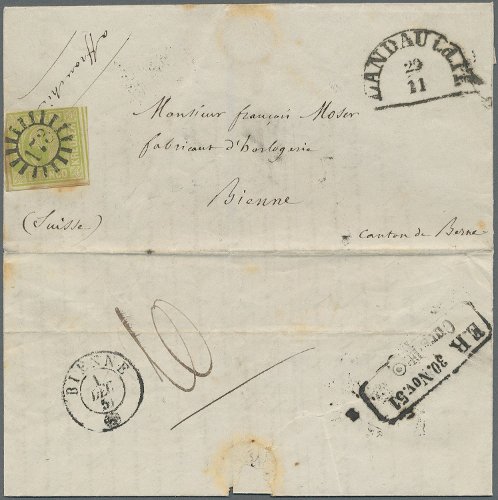 affranchie
LANDAU i.d.Pf.
29
11
173
Monsieur françois Moser
fabricant d'horlogerie
Bienne
(Suisse)
Canton de Berne
10
BIENNE
1
DEC
51
E.R.
30.Nov.51